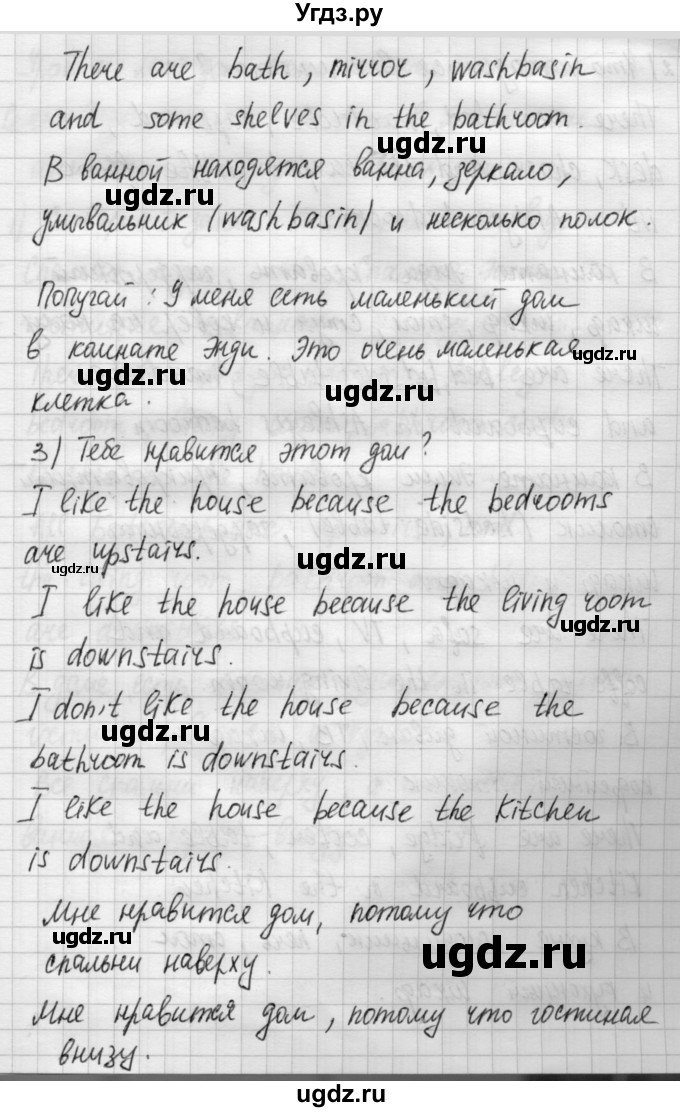 Угдз.ру
There are bath, mirror, washbasin
and some shelves in the bathroom.
ugdz.ru
В ванной находятся ванна, зеркало,
умывальник (washbasin) и несколько полок.
ugdz.ru
Попугай: У меня есть маленький дом
в комнате Энди. Это очень маленькая
ugdz.ru
ugdz.ru
ugdz.ru
клетка.
3) Тебе нравится этот дом?
I like the house because the bedrooms
are upstairs.
ugdz.ru
ugdz.ru
I like the house because the living room
ugdz.ru
is downstairs.
I don't like the house because the
ugdz.ru
bathroom is downstairs.
I like the house because the kitchen
is downstairs.
Мне нравится дом, потому что
ugdz.ru
ugdz.ru
спальни наверху.
Мне нравится дом, потому что гостиная
внизу.
ugdz.ru